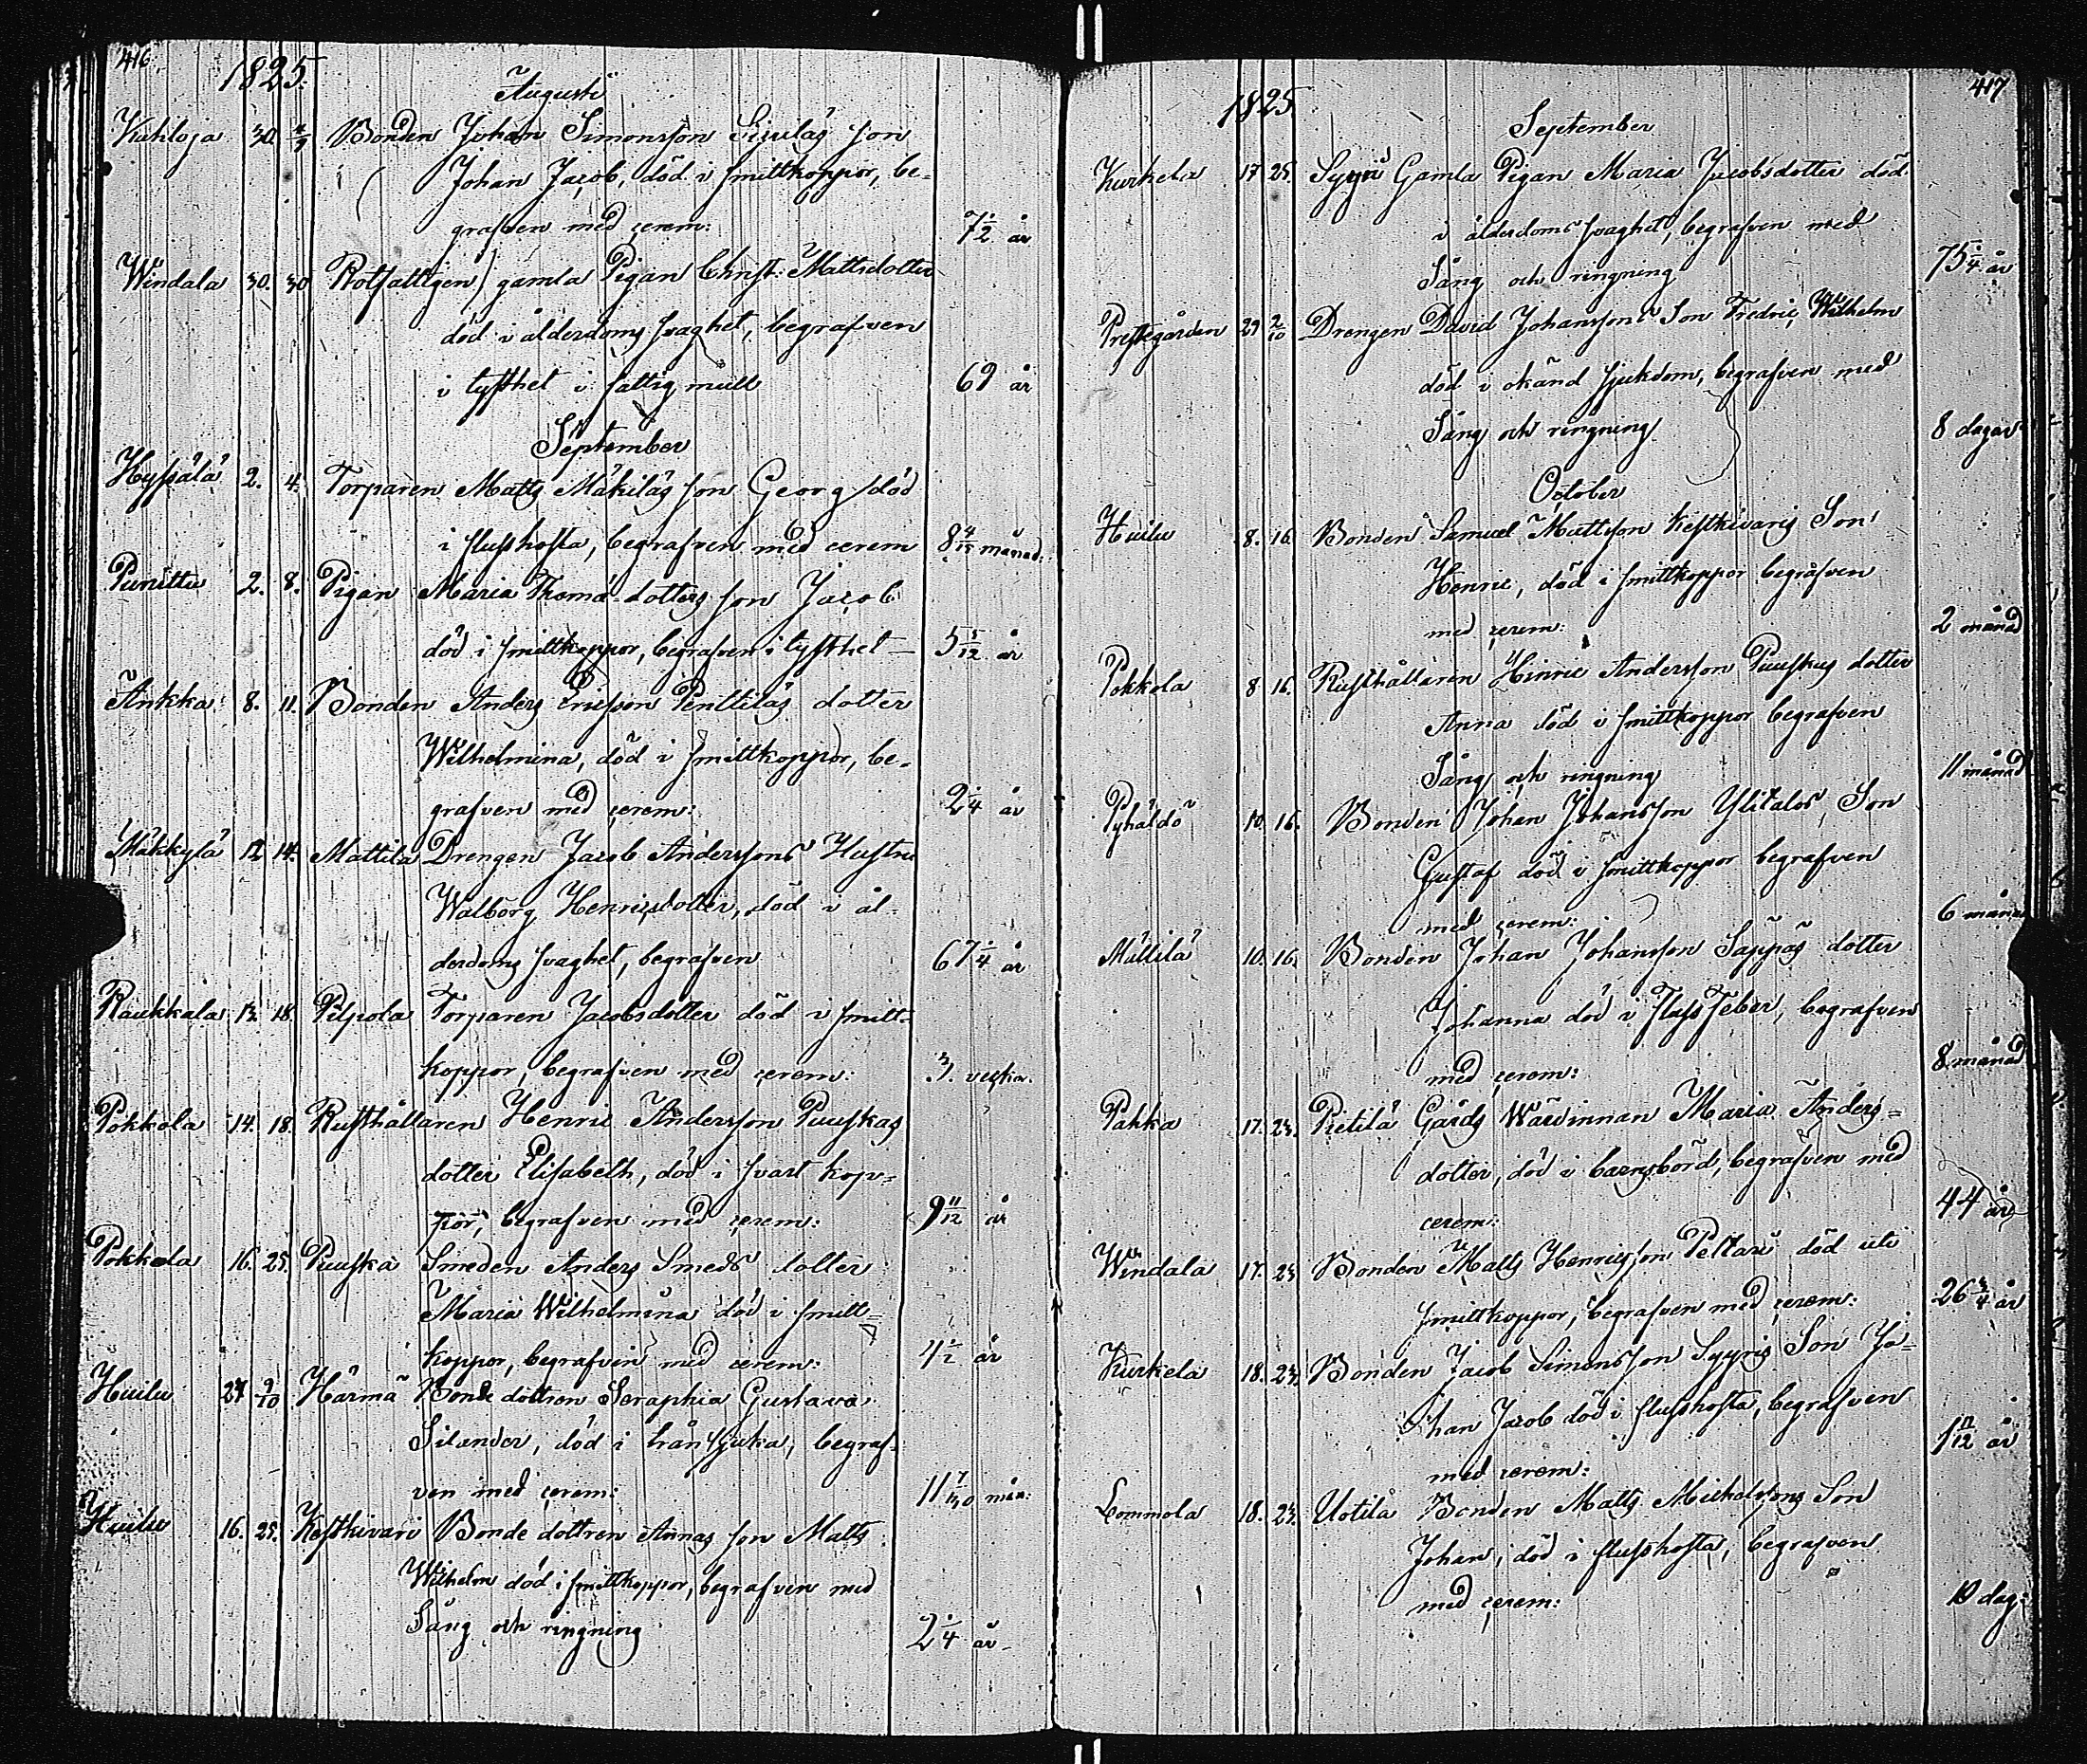 416
1825.
Augusti
Kuhloja 30. 4/9 Bonden Johan Simonsson Sipiläs son
Johan Jacob, död i smittkoppor, be-
grafven med cerem: 7 1/2 år
Windala 30. 30 Rotfattigen gamla Pigan Christ: Mattsdotter
död i ålderdoms svaghet, begrafven
i tysthet i fattig mull 69 år
September
Hyssälä 2. 4. Torparen Matts Mäkiläs son Georg död
i flusshosta, begrafven med cerem 8 4/15 månad:
Punittu 2. 8. Pigan Maria Thomä-dotters son Jacob
död i smittkoppor, begrafven i tysthet — 5 5/12 år
Ankka 8. 11. Bonden Anders Ericsson Penttiläs dotter
Wilhelmina, död i smittkoppor, be-
grafven med cerem: 2 1/4 år
Mäkkylä 12 14. Mattila Drengen Jacob Anderssons Hustru
Walborg Henricsdotter, död i ål-
derdoms svaghet, begrafven 67 1/4 år
Raukkala 13. 18. Pilpola Torparen Jacobsdotter död i smitt-
koppor, begrafven med cerem: 3. veckor.
Pokkola 14. 18. Rusthållaren Henric Andersson Puuskas
dotter Elisabeth, död i svart kop-
por, begrafven med cerem: 9 11/12 år
Pokkola 16. 25. Puuska Smeden Anders Smeds dotter
Maria Wilhelmina död i smitt-
koppor, begrafven med cerem: 4 1/2 år
Huilu 27 9/10 Härmä Bonde dottren Seraphia Gustava
Silander, död i trånsjuka, begraf-
ven med cerem: 11 7/30 mån:
Huilu 16. 25. Kestkivari Bonde dottren Annas son Matts
Wilhelm död i smittkoppor, begrafven med
Sång och ringning 2 1/4 år
417
1825
September
Kurkela 17 25. Syyri Gamla Pigan Maria Jacobsdotter död
i ålderdoms svaghet, begrafven med
Sång och ringning 75 1/4 år
Prestegården 29 2/10 Drengen David Johanssons Son Fredric Wilhelm
död i okänd sjukdom, begrafven med
Sång och ringning 8 dagar
October
Huilu 8. 16. Bonden Samuel Mattsson Kestkivaris Son
Henric, död i smittkoppor begrafven
med cerem: 2 månad
Pokkola 8 16. Rusthållaren Hinric Andersson Puuskas dotter
Anna död i smittkoppor begrafven
Sång och ringning 11 månad
Pyhäldö 10. 16. Bonden Johan Johansson Ylitalos Son
Gustaf död i smittkoppor begrafven
med cerem: 6 månad
Mällilä 10. 16. Bonden Johan Johansson Sappas dotter
Johanna död i Fluss Feber, begrafven
med cerem: 8 månad
Pahka 17. 23. Pietilä Gårds Wärdinnan Maria Anders-
dotter, död i barnsbörd, begrafven med
cerem: 44 år
Windala 17. 23. Bonden Matts Henricsson Peltari död uti
smittkoppor, begrafven med cerem: 26 3/4 år
Kurkela 18. 23. Bonden Jacob Simonsson Syyris Son Jo-
han Jacob död i flusshosta, begrafven
med cerem: 1 11/12 år
Lommola 18. 23. Uotila Bonden Matts Michelssons Son
Johan, död i flusshosta, begrafven
med cerem: 10 dag: